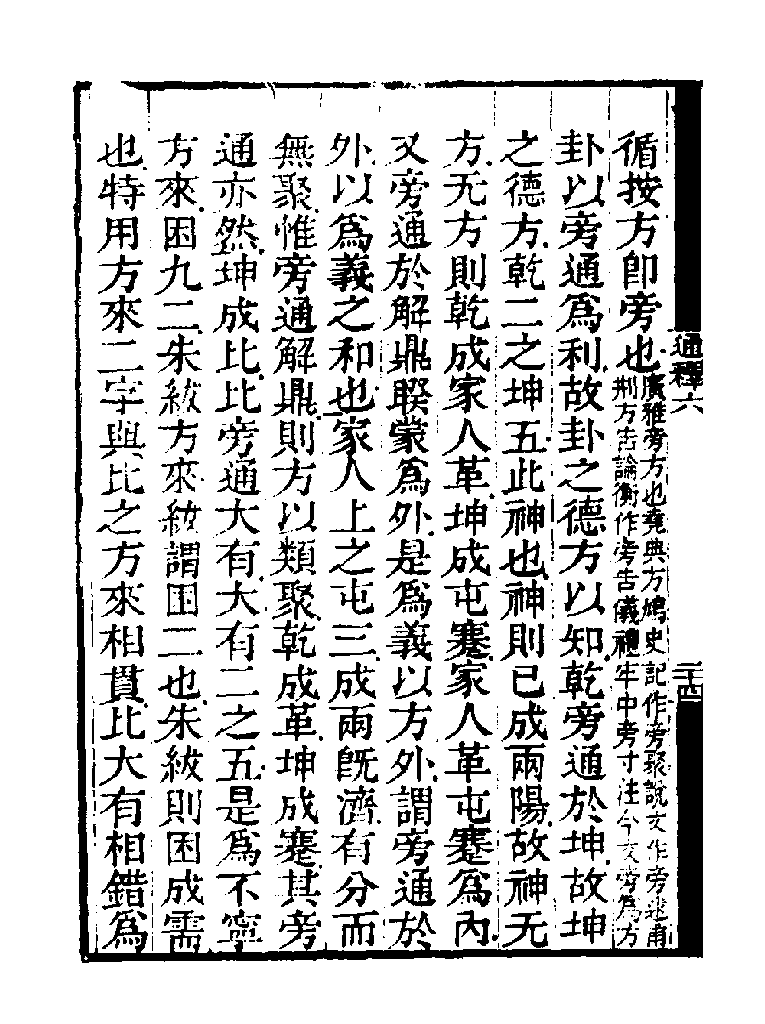 通釋六
二十四
循按方卽旁也
廣雅旁方也堯典方鳩史記作旁聚說文作旁逑甫
刑方告論衡作旁告儀禮牢中旁寸注今文旁爲方
卦以旁通爲利故卦之德方以知乾旁通於坤故坤
之德方乾二之坤五此神也神則已成兩陽故神无
方无方則乾成家人革坤成屯蹇家人革屯蹇爲內
又旁通於解鼎睽蒙爲外是爲義以方外謂旁通於
外以爲義之和也家人上之屯三成兩旣濟有分而
無聚惟旁通解鼎則方以類聚乾成革坤成蹇其旁
通亦然坤成比比旁通大有大有二之五是爲不寧
方來困九二朱紱方來紱謂困二也朱紱則困成需
也特用方來二字與比之方來相貫比大有相錯爲